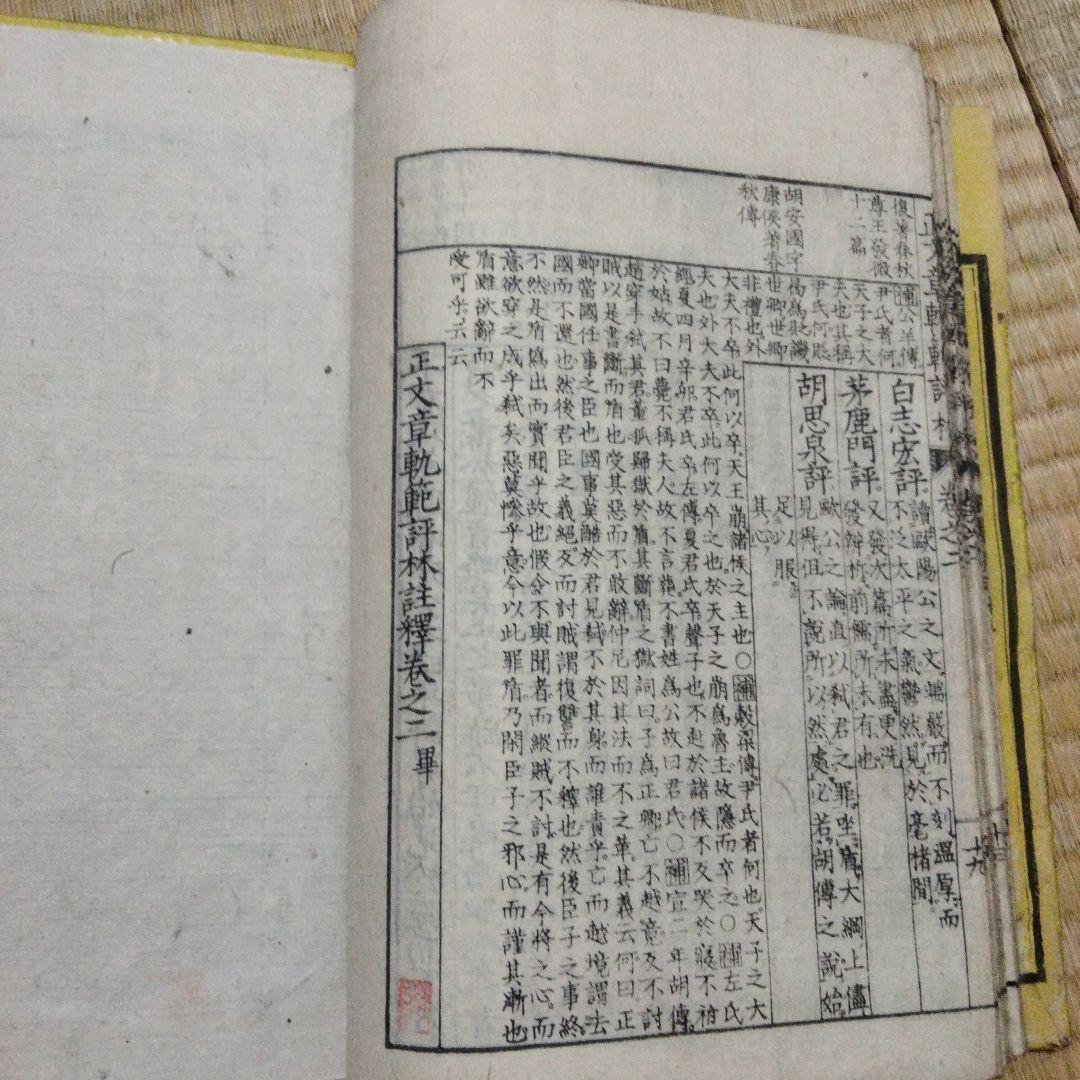 正文章軌範評林 卷之二
十九
復著春秋
尊王發微
十二篇
胡安國字
康侯著春
秋傳
白志宏評 讀歐陽公之文端嚴而不刻溫厚而
不泛太平之氣鬱然見於毫楮間
茅鹿門評 又發次篇所未盡更洗
發辨析前儒所未有也
胡思泉評 歐公之論直以弒君之罪坐盾大綱上儘
見得但不說所以然處必若胡傳之說始
足以服
其心
補公羊傳
尹氏者何
天子之大
夫也其稱
尹氏何貶
曷為貶譏
世卿世卿
非禮也外
大夫不卒此何以卒天王崩諸侯之主也〇補穀梁傳尹氏者何也天子之大
夫也外大夫不卒此何以卒之也於天子之崩為魯主故隱而卒之〇補左氏
經夏四月辛卯君氏卒左傳夏君氏卒聲子也不赴於諸侯不反哭於寢不祔
於姑故不曰薨不稱夫人故不言葬不書姓為公故曰君氏〇補宣二年胡傳
趙穿手弒其君董狐歸獄於盾其斷盾之獄詞曰子為正卿亡不越竟反不討
賊以是書斷而盾也受其惡而不敢辭仲尼因其法而不之革其義云何曰正
卿當國任事之臣也國事莫酷於君見弒不於其身而誰責乎亡而越境謂去
國而不還也然後君臣之義絕反而討賊謂復讐而不釋也然後臣子之事終
不然是盾偽出而實聞乎故也假令不與聞者而縱賊不討是有今將之心而
意欲穿之成乎弒矣惡莫慘乎意今以此罪盾乃閑臣子之邪心而謹其漸也
盾雖欲辭而不
受可乎云云
正文章軌範評林註釋卷之二 畢